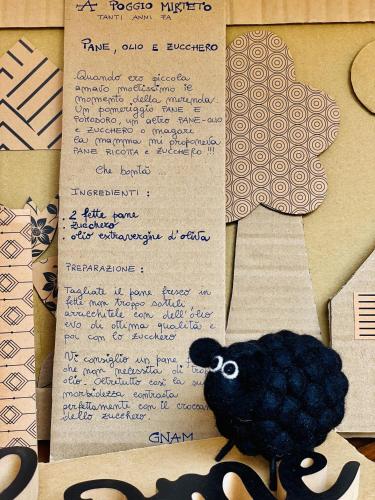 A POGGIO MIRTETO
TANTI ANNI FA
PANE, OLIO E ZUCCHERO
Quando ero piccola
amavo moltissimo il
momento della merenda.
Un pomeriggio PANE E
POMODORO, un altro PANE-OLIO
E ZUCCHERO o magari
la mamma mi proponeva
PANE RICOTTA E ZUCCHERO !!!
Che bontà ...
INGREDIENTI :
. 2 fette pane
. zucchero
. olio extravergine d'oliva
PREPARAZIONE :
Tagliate il pane fresco in
fette non troppo sottili,
arricchitele con dell'olio
evo di ottima qualità e
poi con lo zucchero
Vi consiglio un pane
che non necessita di
olio. Oltretutto così la sua
morbidezza contrasta
perfettamente con il
dello zucchero.
GNAM